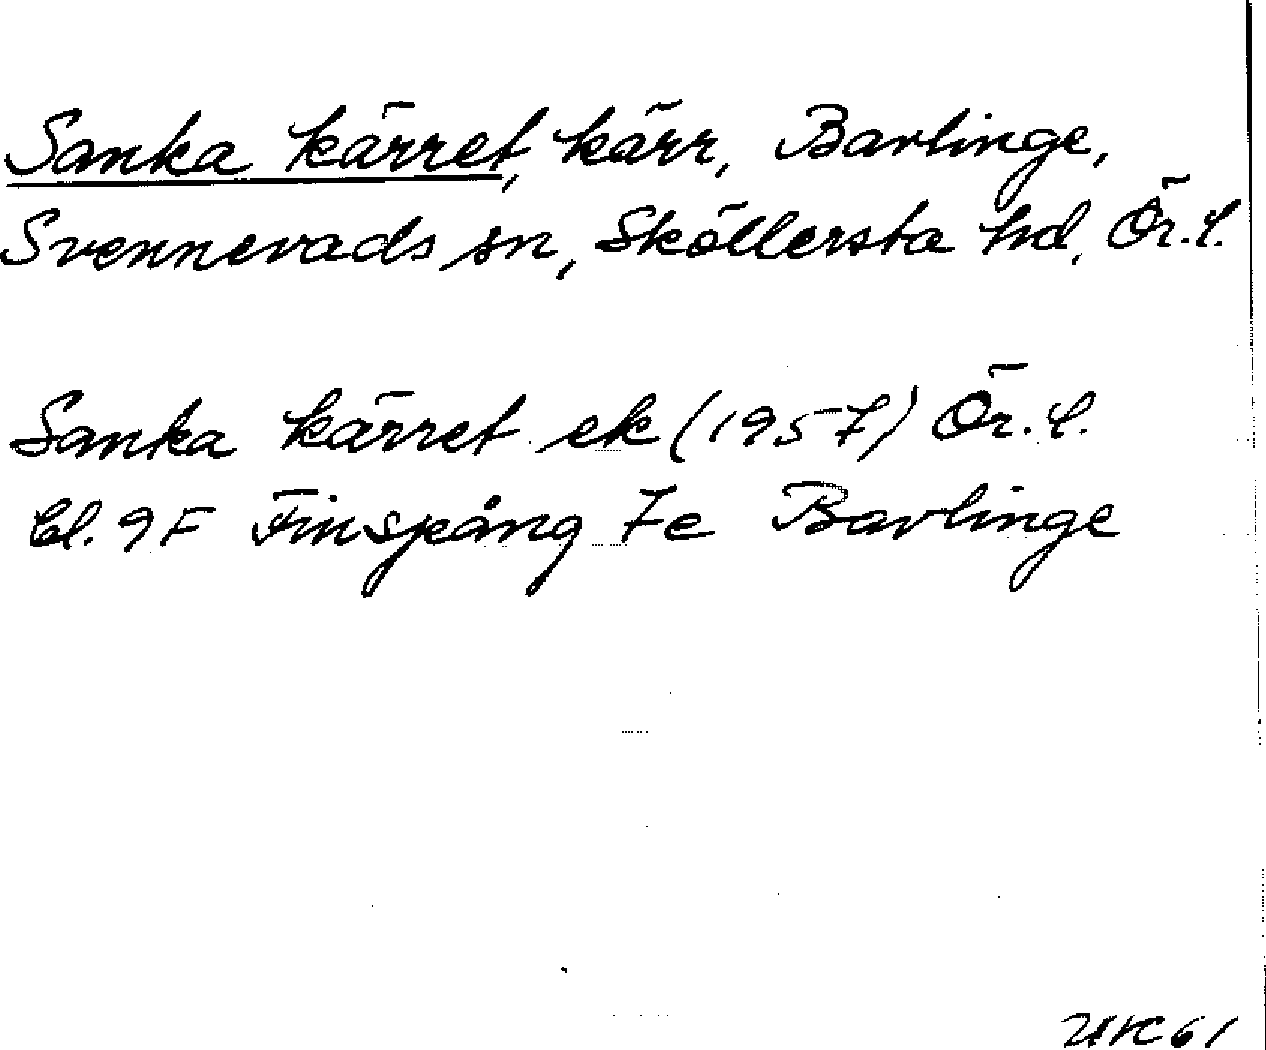 Sanka kärret, kärr, Bavlinge,
Svennevads sn, Sköllersta hd, Ör.l.
Sanka kärret ek (1957) Ör.l.
bl. 9F Finspång 7e Bavlinge
61